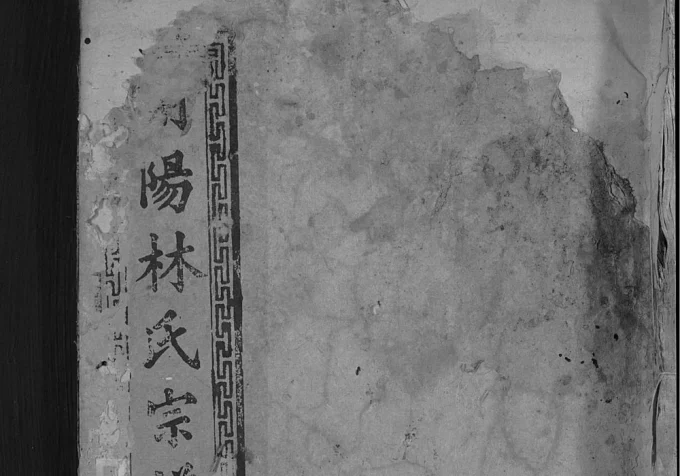 陽林氏宗